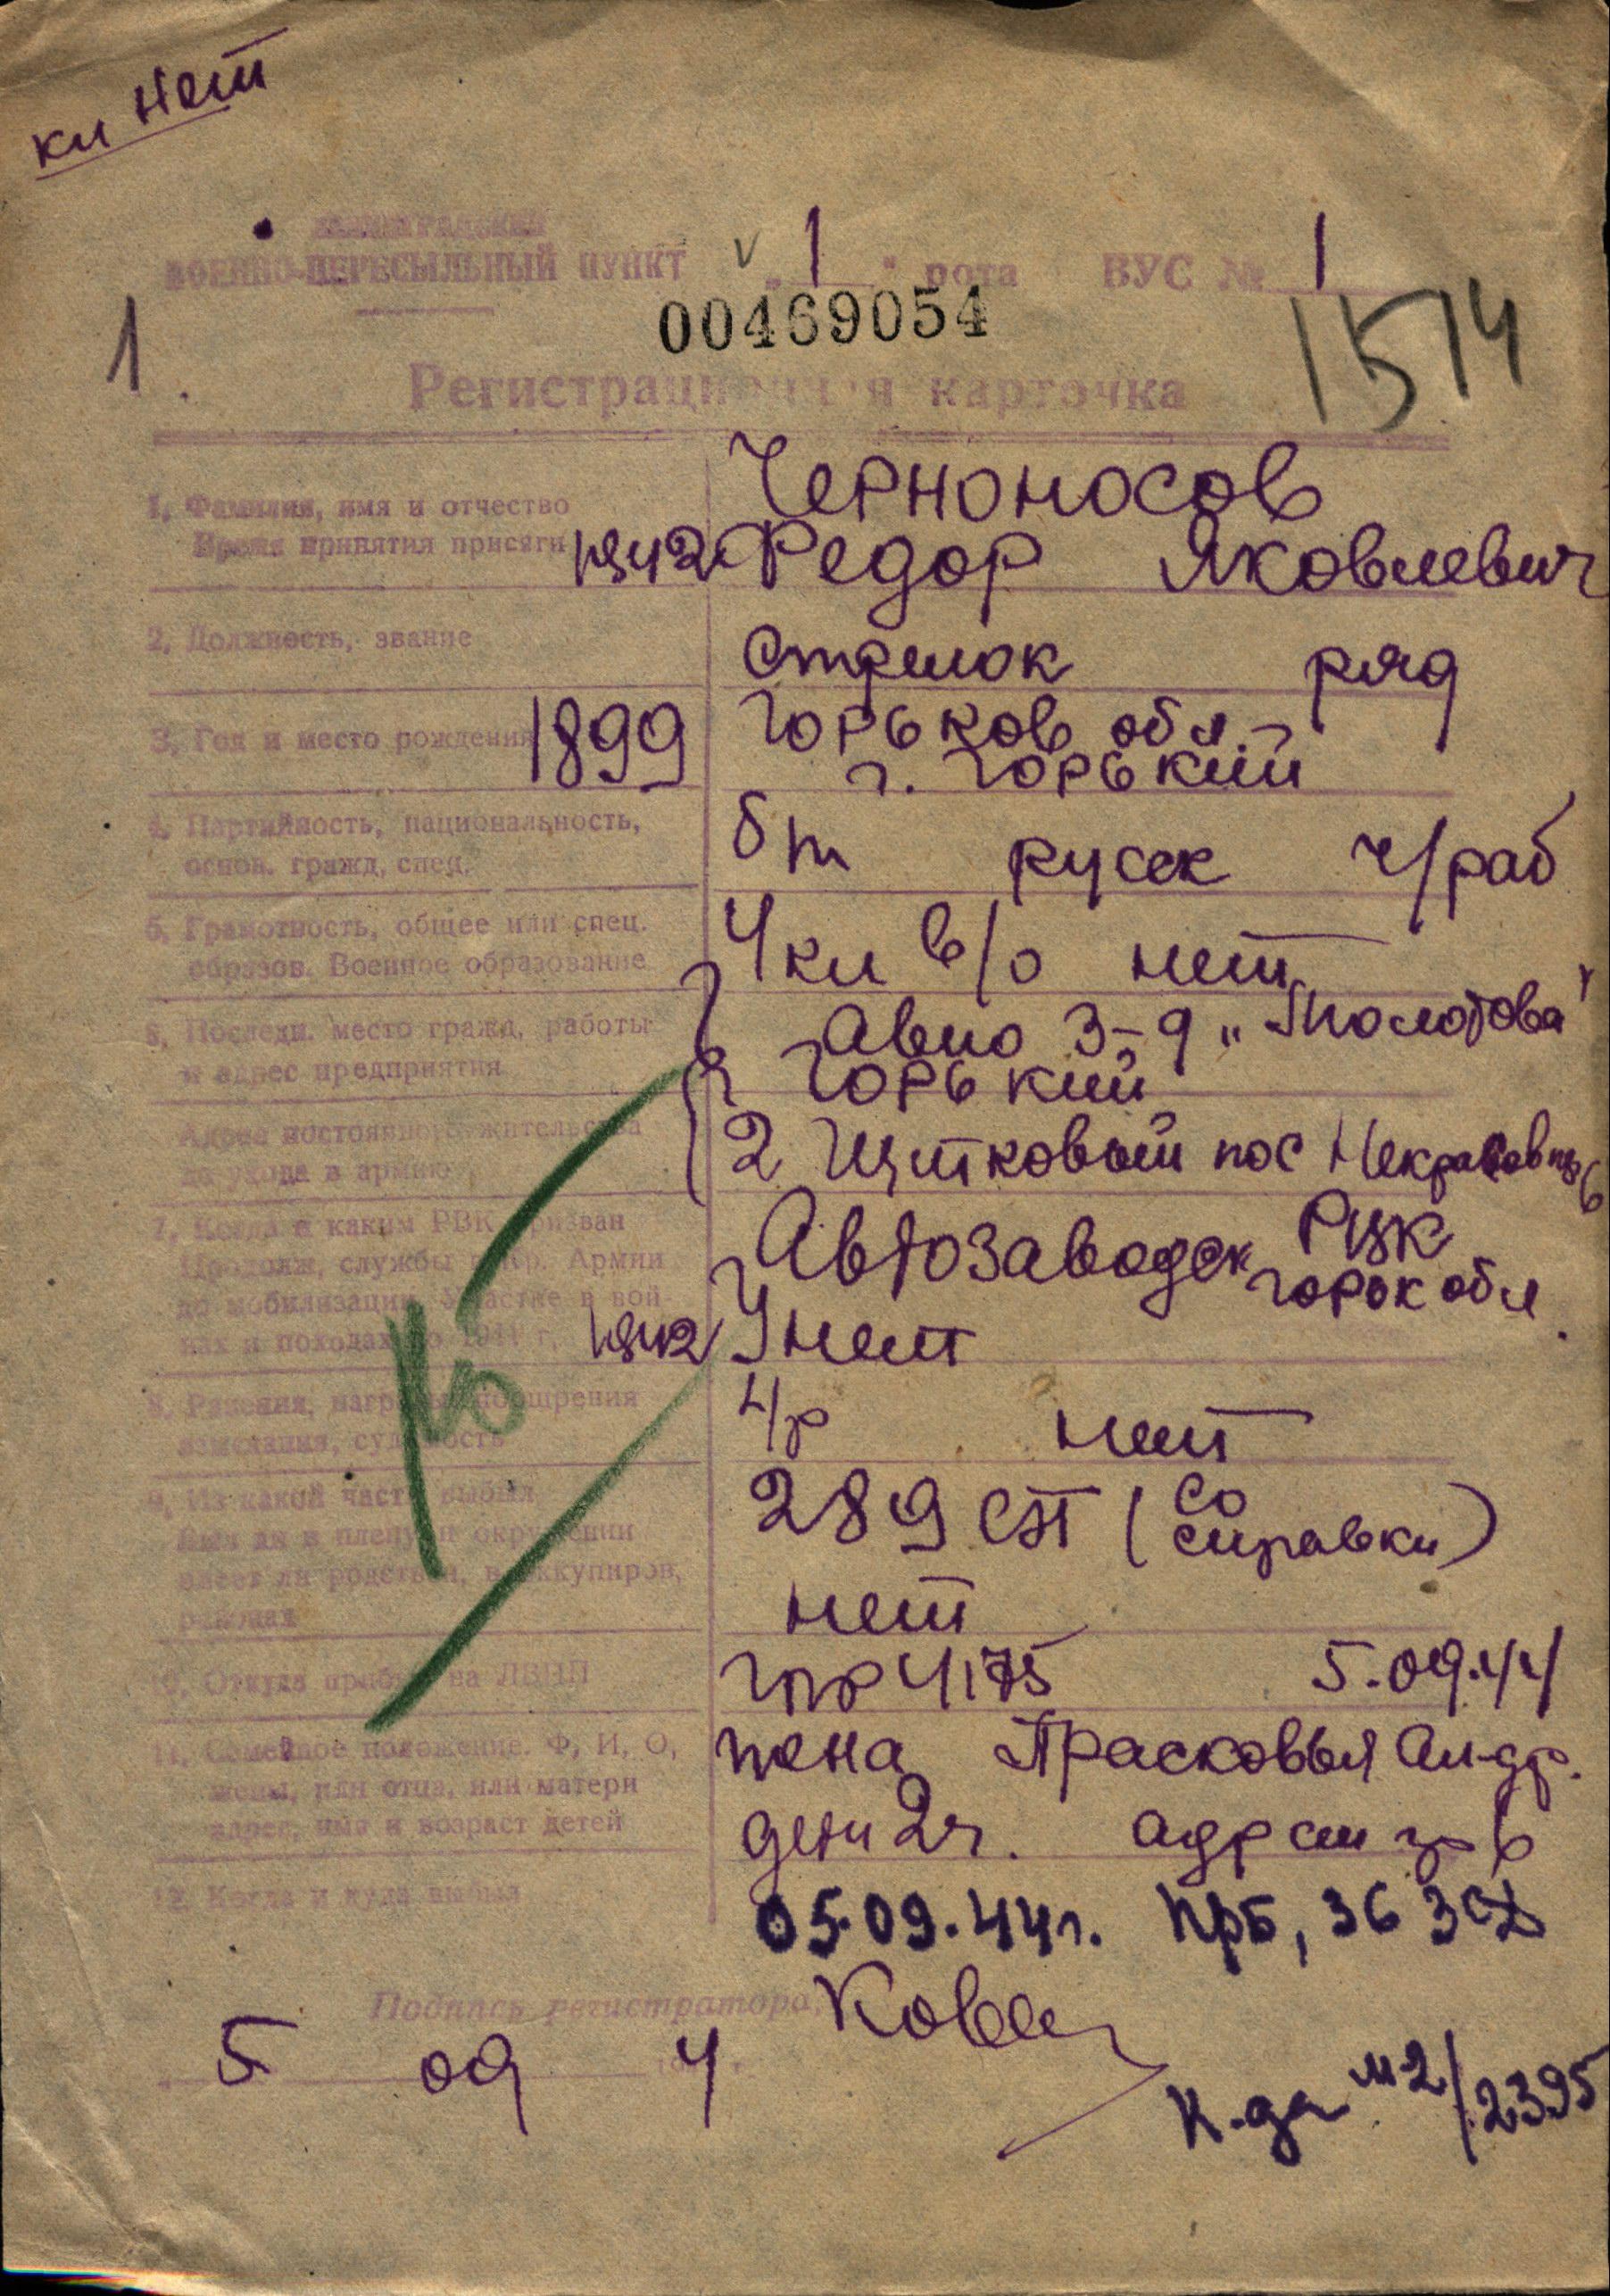 кн нет
ЛЕНИНГРАДСКИЙ
ВОЕННО-ПЕРЕСЫЛЬНЫЙ ПУНКТ v „ 1 " рота ВУС № 1
00469054
1 1514
Регистрационная карточка
Черноносов
1. Фамилия, имя и отчество
Время принятия присяги 1942 Федор Яковлевич
2. Должность, звание стрелок ряд
3. Год и место рождения 1899 Горьков обл.
г. Горький
4. Партийность, национальность, основ. гражд. спец. б/п русск ч/раб
5. Грамотность, общее или спец.
образов. Военное образование 4 кл в/о нет
6. Последн. место гражд. работы Авто з-д „Молотова"
и адрес предприятия г Горький
Адрес постоянного жительства
до ухода в армию 2 Щитковый пос
7. Когда и каким РВК призван Автозаводск РВК
Продолж. службы в Кр. Армии Горьк обл.
до мобилизации. Участие в вой-
нах и походах до 1941 г. 1942 нет
8. Ранения, награды, поощрения
взыскания, судимость л/р нет
9. Из какой части выбыл 289 сп (со справки)
Был ли в плену и окружении
имеет ли родствен. в оккупиров.
районах нет
10. Откуда прибыл на ЛВПП 4175 5.09.44
11. Семейное положение. Ф, И, О, жена Прасковья Ал-др.
жены, или отца, или матери
адрес, имя и возраст детей дети 2ч. адр см гр 6
12. Когда и куда выбыл 05.09.44г. 36 ЗСД
Подпись регистратора
5 09 4
К-да м2/2395